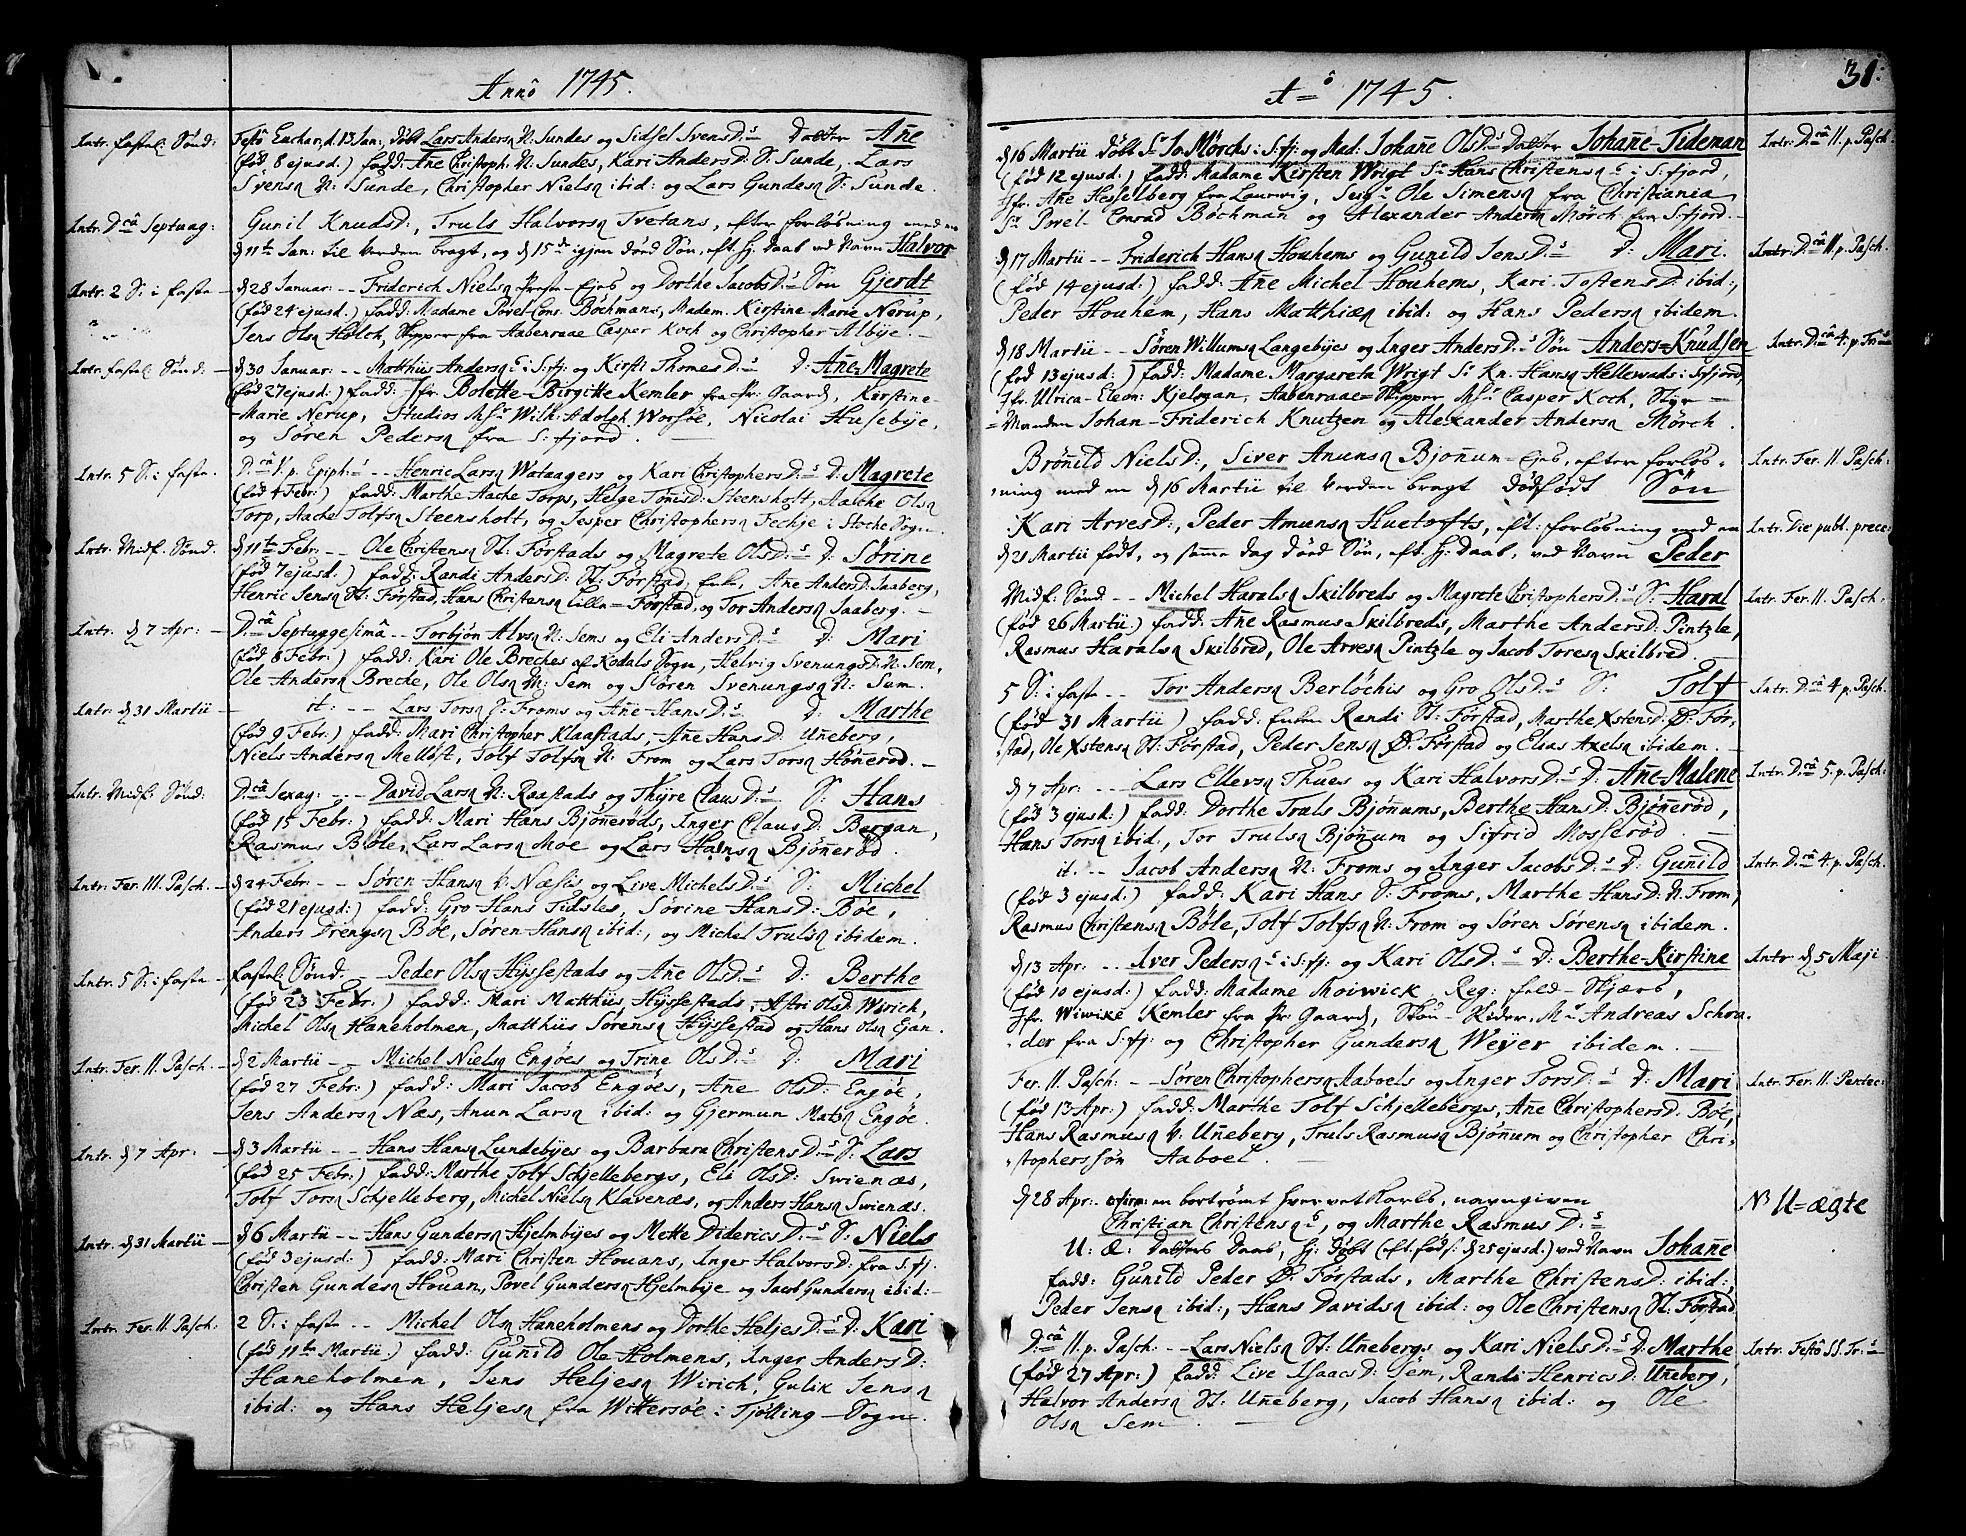 Anno 1745.
Intr. fastel: Sønd: Festo Euchar. d. 13 Jan: døbt Lars Andersn N: Sundes og Sidsel SvensD:s Datter Añe
(fød 8 ejusd:) fadd: Añe Christoph: N: Sundes, Kari AndersD: S: Sunde, Lars
Svensn N: Sunde, Christopher Nielsn ibid: og Lars Gundesn S: Sunde.
Intr. D:câ Septuag: Gunil KnudsD:, Truls Halvorsn Tvetans, efter forløsning med en
d 11te Jan: til Verden bragt, og d 15de igjen død Søn, eft. Hj. Daab ved Navn Halvor
Intr. 2 S: i faste d 28 Januar: -- Friderich Nielsn Ejes og Dorthe JacobsD:s Søn Gjerdt
(fød 24 ejusd:) fadd: Madame Povel Cons. Bøchmans, Madem. Kirstine Marie Nerup,
Jens Olsn Holch, Skipper fra Aabenraae Casper Koch og Christopher Albye.
Intr. fastel: Sønd: d 30 Januar: -- Matthis Andersn:s i S:fj: og Kirsti ThomesD:s D: Añe-Magrete
(fød 27 ejusd:) fadd: Jfr. Bolette-Birgitte Kemler fra Pr: Gaard, Kirstine
Marie Nerup, Studios Msr Wilh: Adolph Worsøe, Nicolai Husebye,
og Søren Pedersn fra S:fjord.
Intr. 5 S: i faste. D:câ 5. p. Epiph:s -- Henric Larsn Wataagers og Kari ChristophersD:s D: Magrete
(fød 4 Febr:) fadd: Marthe Aache Torps, Helge TomisD: Steensholt, Aache Olsn
Torp, Aache Tolfsn Steensholt, og Jesper Christophersn Fechje i Stoche Sogn.
Intr. Midf. Sønd. d 11te Febr: -- Ole Christensn St: Førstads og Magrete OlsD:s D: Sørine
(fød 7 ejusd:) fadd: Randi AndersD: St: Førstad, Enke, Añe AndersD: Jaaberg,
Henric Jensn St: Førstad, Hans Christensn Lille-Førstad, og Tor Andersn Jaaberg.
Intr. d 7 Apr: D:câ Septuagesimâ -- Torbjøn Alvsn N: Sems og Eli AndersD:s D: Mari
(fød 8 Febr:) fadd: Kari Ole Breches af Kodals Sogn, Helvig SvenungsD: N: Sem,
Ole Andersn Breche, Ole Olsn N: Sem og Søren Svenungsn N: Sem.
Intr. d 31 Martii it: -- Lars Torsn S: Froms og Añe HansD:s D: Marthe
(fød 9 Febr:) fadd: Mari Christopher Klaastads, Añe HansD: Uñeberg,
Niels Andersn Melløst, Tolf Tolfsn N: From og Lars Torsn Høñerød.
Intr. Midf: Sønd: D:câ Sexag: -- David Larsn N: Raastads og Thyre ClausD:s S: Hans
(fød 15 Febr:) fadd: Mari Hans Bjøñerøds, Inger ClausD: Bergan,
Rasmus Bøle, Lars Larsn Moe og Lars Hansn Bjøñerød.
Intr. Fer. III. Pasch. d 24 Febr: -- Søren Hansn V: Næsis og Live MichelsD:s S: Michel
(fød 21 ejusd:) fadd: Gro Hans Tidsles, Sørine HansD: Bøe,
Anders Drengsn Bøe, Søren Hansn ibid:, og Michel Trulsn ibidem.
Intr. 5 S: i faste Fastel: Sønd: -- Peder Olsn Hyssestads og Añe OlsD:s D: Berthe
(fød 23 Febr:) fadd: Mari Matthiis Hyssestads, Astri OlsD: Wirich,
Michel Olsn Haneholmen, Matthiis Sørensn Hyssestad og Hans Olsn Gjan.
Intr. Fer. II. Pasch. d 2 Martii -- Michel Nielsn Engøes og Trine OlsD:s D: Mari
(fød 27 Febr:) fadd: Mari Jacob Engøes, Añe OlsD: Engøe,
Jens Andersn Næs, Anun Larsn ibid: og Gjermun Matsn Engøe.
Intr. d 7 Apr: d 3 Martii -- Hans Hansn Lundebyes og Barbara ChristensD:s S: Lars
(fød 25 Febr:) fadd: Marthe Tolf Schjellebergs, Eli OlsD: Svienæs,
Tolf Torsn Schjelleberg, Michel Nielsn Klavenæs, og Anders Hansn Svienæs.
Intr. d 31 Martii d 6 Martii -- Hans Gundersn Hjelmbyes og Mette DidericsD:s S: Niels
(fød 3 ejusd:) fadd: Mari Christen Houans, Inger HalvorsD: fra S:fj:
Christen Gundesn Houan, Povel Gundersn Hjelmbye og Jacob Gundersn ibid:
Intr. Fer. II. Pasch: 2 S: i faste -- Michel Olsn Haneholmens og Dorthe HeljesD:s D: Kari
(fød 11te Martii) fadd: Guñild Ole Holmens, Inger AndersD:
Haneholmen, Jens Heljesn Wirich, Gulik Jensn
ibid: og Hans Heljesn fra Wittersøe i Tjølling Sogn.
Ao 1745. 31:
d 16 Martii døbt Sr Jo Mørchs i S:fj: og Mad. Johañe OlsD:s Datter Johañe-Tideman Intr. D:câ II. p. Pasch:
(fød 12 ejusd:) fadd: Madame Kirsten Wrigt Sr Hans Christensn:s i S:fjord,
Jfr. Añe Hesselberg fra Laurwig, Seigr Ole Simensn fra Christiania
Sr Povel Conrad Bøchman og Alexander Andersn Mørch fra S:fjord.
d 17 Martii -- Friderich Hansn Houhems og Gunild JensD:s D: Mari. Intr. D:câ II. p. Pasch:
(fød 14 ejusd:) fadd: Añe Michel Houhems, Kari TostensD: ibid:,
Peder Houhem, Hans Matthiæsn ibid: og Hans Pedersn ibidem.
d 18 Martii -- Søren Willumsn Langebyes og Inger AndersD:s Søn Anders-Knudsen Intr. D:câ 4. p. Tr:s
(fød 13 ejusd:) fadd: Madame Margareta Wrigt Sr Kn: Hansn Hellewads i S:fjord,
Jfr. Ulrica-Eleon: Kjelsgan, Aabenraae-Skipper Msr Casper Koch, Styr-
Manden Johan-Friderich Knutzen og Alexander Andersn Mørch.
Brønild NielsD:, Siver Anunsn Bjøñum-Ejes, efter forløs- Intr. Fer. II. Pasch:
ning med en d 16 Martii til Verden bragt dødfødt Søn
Kari ArvesD:, Peder Amunsn Huetofts, eft: forløsning med en Intr. Die publ. prece:
d 21 Martii født, og samme dag død Søn, eft. Hj: Daab, ved Navn Peder
Midf: Sønd -- Michel Haralsn Skilbreds og Magrete ChristophersD:s S: Haral Intr. Fer. II. Pasch:
(fød 26 Martii) fadd: Añe Rasmus Skilbreds, Marthe AndersD: Pintzle,
Rasmus Haralsn Skilbred, Ole Arvesn Pintzle og Jacob Toresn Skilbred.
5 S: i faste -- Tor Andersn Berløchis og Gro OlsD:s S: Tolf Intr. D:câ 4 p. Pasch:
(fød 31 Martii) fadd: Enken Randi St: Førstad, Marthe XstensD: Ø: Før-
stad, Ole Xstensn St: Førstad, Peder Jensn Ø: Førstad og Elias Axelsn ibidem.
d 7 Apr: -- Lars Ellevsn Thues og Kari HalvorsD:s D: Añe-Malene Intr. D:câ 5. p. Pasch:
(fød 3 ejusd:) fadd: Dorthe Truls Bjøñums, Berthe HansD: Bjøñerød,
Hans Torsn ibid:, Tor Trulsn Bjøñum og Sifrid Mosserød.
it. -- Jacob Andersn N: Froms og Inger JacobsD:s D: Guñild Intr. D:câ 4. p. Pasch:
(fød 3 ejusd:) fadd: Kari Hans S: Froms, Marthe HansD: N: From,
Rasmus Christensn Bøle, Tolf Tolfsn N: From og Søren Sørensn ibidem.
d 13 Apr: -- Iver Pedersn:s i S:fj: og Kari OlsD:s D: Berthe-Kirstine Intr. d 5 Maji
(fød 10 ejusd:) fadd: Madame Moiwick, Reg: feld-Skjærs,
Jfr. Wiwike Kemler fra Pr: Gaard, Skou-Rider, Mr Andreas Schra-
der fra S:fj: og Christopher Gundersn Weyer ibidem.
Fer. II. Pasch: -- Søren Christophersn Aaboels og Inger TorsD:s D: Mari Intr. Fer. II. Pentec:
(fød 13 Apr:) fadd: Marthe Tolf Schjellebergs, Añe ChristophersD: Bøe,
Hans Rasmusn V: Uñeberg, Truls Rasmusn Bjøñum og Christopher Chri-
stopherssøn Aaboel.
d 28 Apr: en bortrømt hvervet Karls, navngiven NB U-ægte
Christian Christensn:s, og Marthe RasmusD:s
U: Æ: Datters Daab, Hj: døbt (eft. føds: d 25 ejusd:) ved Navn Johañe
fadd: Guñild Peder Ø: Førstads, Marthe ChristensD: ibid:
Peder Jensn ibid:, Hans Davidsn ibid: og Ole Christensn St: Førstad
D:câ II. p. Pasch: -- Lars Nielsn St: Uñebergs og Kari NielsD:s D: Marthe Intr. Festo SS. Tr:s
(fød 27 Apr:) fadd: Live IsaacsD: Sem, Randi HenricsD: Uñeberg,
Halvor Andersn St: Uñeberg, Jacob Hansn ibid: og Ole
Olsn Sem